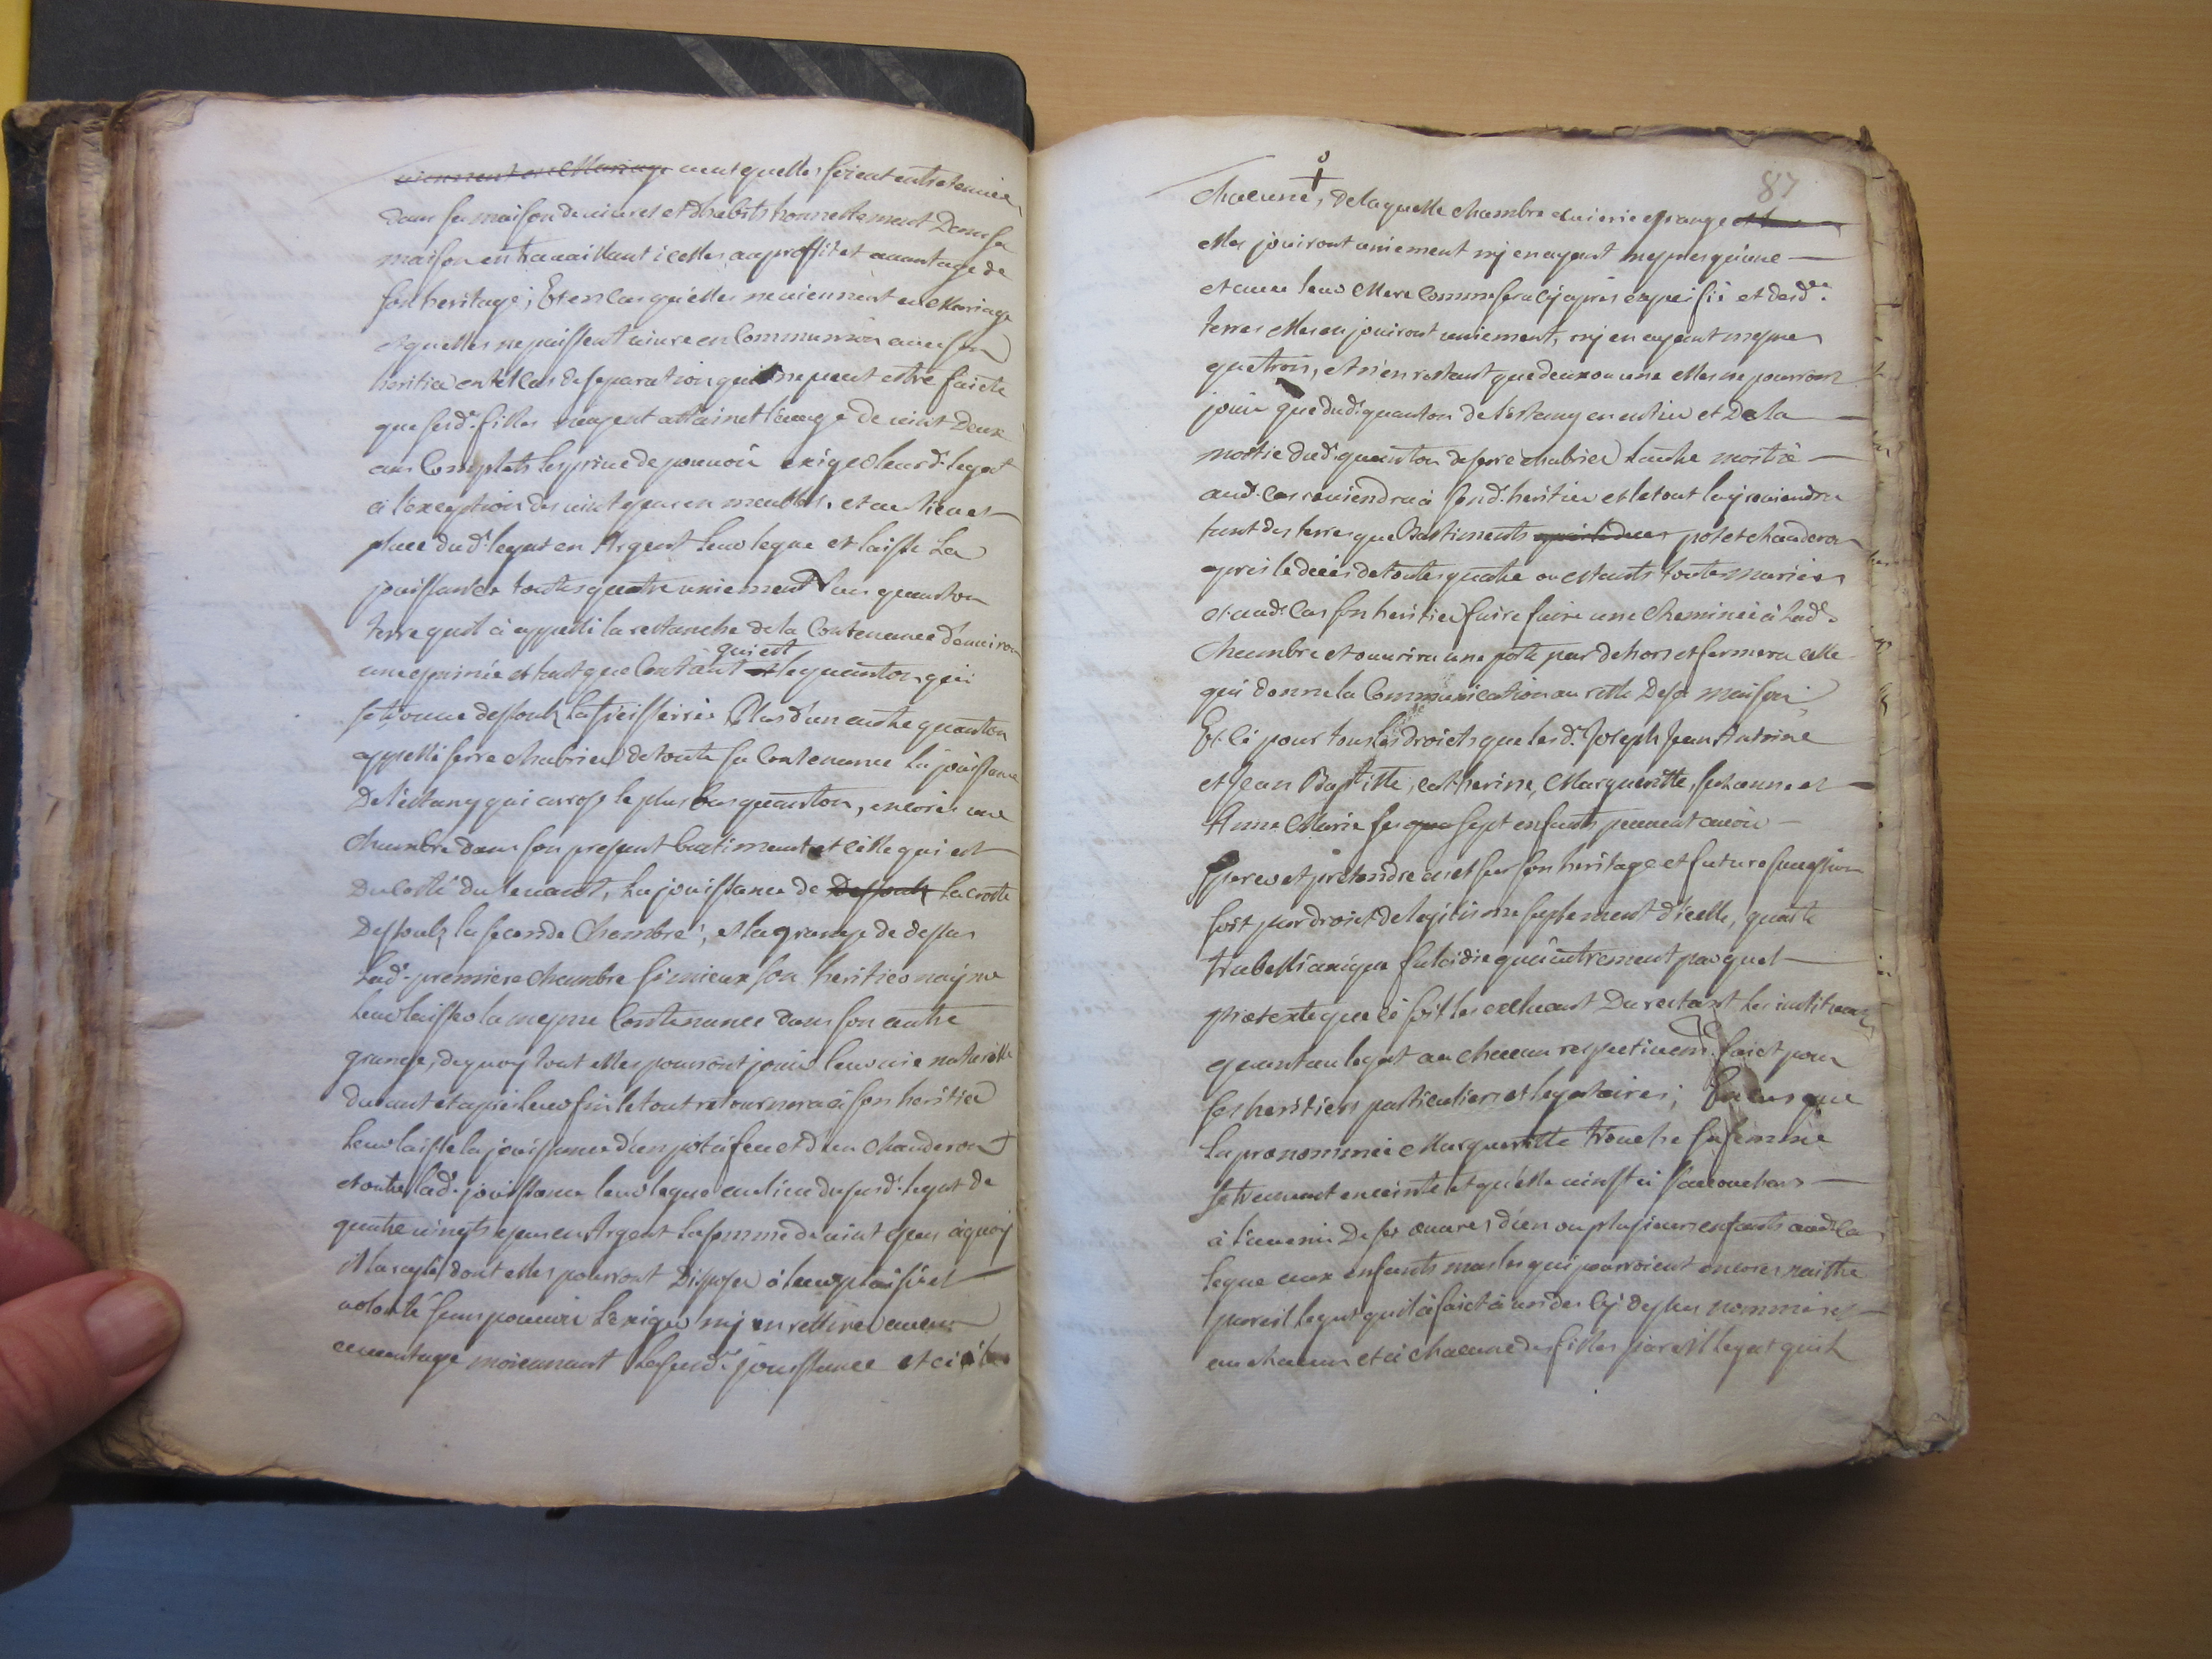 viennent en Mariage veut quelles soient entretenues
dans sa maison de vivres et d'habits honnettement Dans sa
maison en travaillant icelles au proffit et avantage de
son heritage; Et en cas qu'elles ne viennent en Mariage
et quelles ne puissent vivre en Communion avec son
heritier en tel cas de separation qui ne peut estre faicte
que sesd. filles nayent attainct l'eage de vint Deux
ans Complets les prive de pouvoir exiger leurd. legat
à l'exception des vint escus en meubles, et au lieu et
place dud. legat en Argent leur legue et laisse La
jouissance toutes quatre uniement d'un quanton
terre quil à appellé la restanche de la Contenance d'environ
une eminée et tant que Contient qui est le quanton qui
se trouve dessoulz la Plus d'un autre quanton
appellé serre chabrier de toute sa Contenance la jouissance
De l'estang qui arrose le plus bas quanton, encores une
Chambre dans son present bastiment et celle qui est
Du costé du levant, La jouissance de Dessoulz La crotte
Dessoulz la seconde Chambre, et la grange de dessus
Lad. premiere chambre si mieux son heritier n'ayme
leur laisser la mesme Contenance dans son autre
grange, de quoy tout elles pourront jouir leur vie naturelle
durant et après leur fin le tout retournera à son heritier
Leur laisse la jouissance d'un pot à feu et d'un chauderon
et outre lad. jouissance leur legue au lieu du susd. legat de
quatre vingts escus en Argent La somme de vint escus à quoy
il la reglé, dont elles pourront Disposer à leurs plaisir et
volonté sans pouvoir L'exiger ny en rettirer aucun
avantage moienant La susd. jouissance et ce
87
chacune, De laquelle chambre escuierie et grange
elles jouiront uniement ny en ayant mesmes qu'une
et avec leur Mere Comme sera cy après expecifié et desd.
terres elles en jouiront uniement, ny en ayant mesmes
que trois, et n'en restant que deux ou une elles ne pourront
jouir que dud. quanton de l'estang en entier et De la
moitié dud. quanton de serre chabrier l'autre moitié
aud. cas reviendra à sond. heritier et le tout luy reviendra
tant des terres que Bastiments pot et chauderon
après le decès de toutes quatre ou estants toutes mariées
et aud. Cas son heritier faira faire une cheminée à lad.
Chambre et ouvrira une porte par dehors et fermera celle
qui donne la Communication au reste De sa maison;
Et ce pour tous les droicts que lesd. Joseph Jean Antoine
et Jean Baptiste, catherine, Margueritte, Jeanne et
Anne Marie ses sept enfants peuvent avoir
et pretendre en et sur son heritage et future succession
soit par droict de legitime suplement d'icelle, quarte
trebellianique falcidie qu'autrement par quel
pretexte que ce soit les excluant Du restant Les instituant
quant au legat à un chacun respectivem. faict pour
ses heritiers particuliers et legataires; En cas que
la prenommée Margueritte trouche sa femme
se trouvant enceinte et qu'elle vinst à s'accoucher
à l'avenir De ses œuvres d'un ou plusieurs enfants aud. cas
legue aux enfants masles qui pourroient encores naistre
pareil legat quil à faict à un des cy dessus nommés et
un chacun et à chacune des filles pareil legat quil